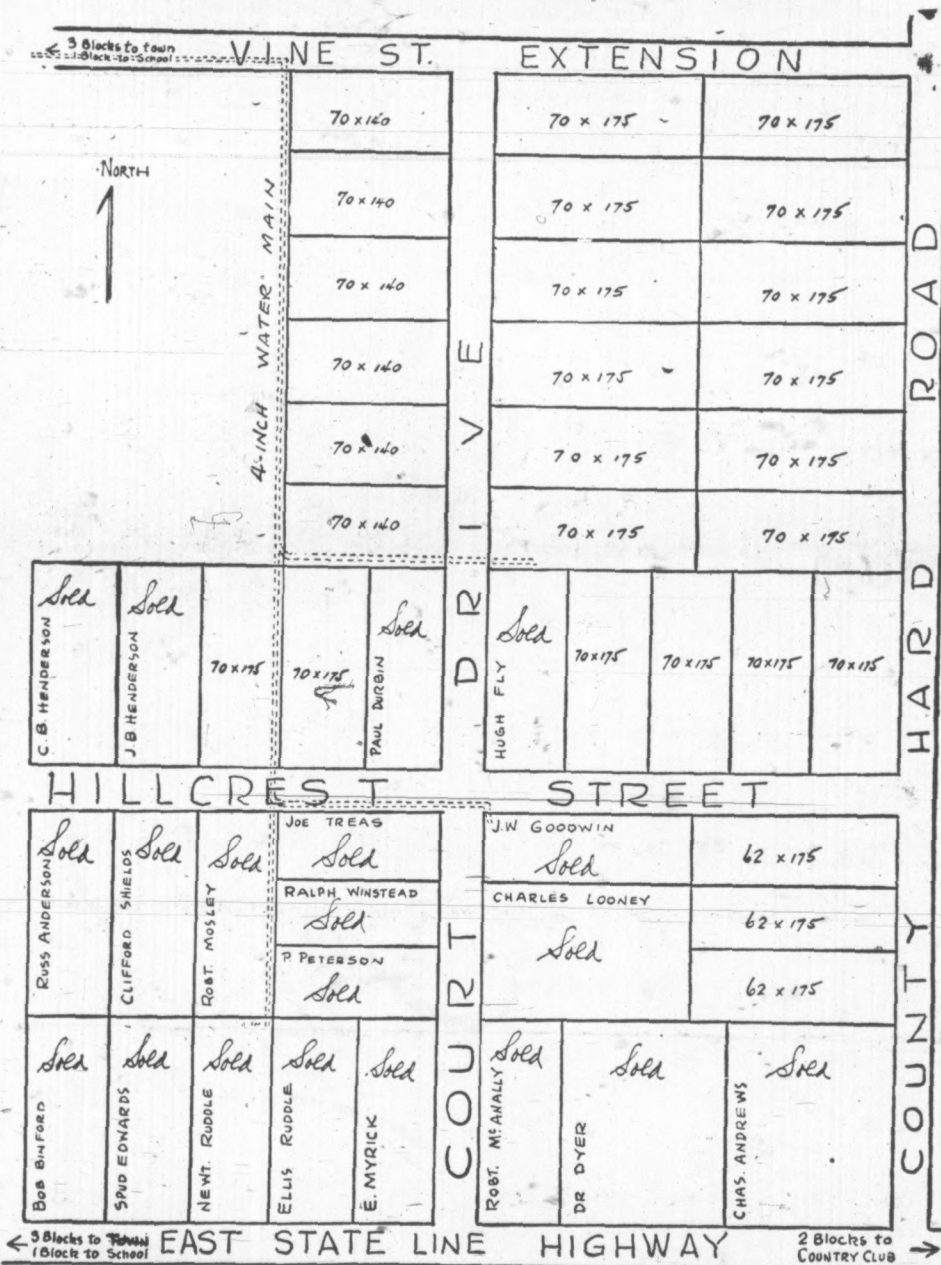 ← 3 Blocks to town
1 Block to School
VINE ST. EXTENSION
NORTH
4-INCH WATER MAIN
70 x 140
70 x 175
70 x 175
70 x 140
70 x 175
70 x 175
70 x 140
70 x 175
70 x 175
70 x 140
70 x 175
70 x 175
70 x 140
70 x 175
70 x 175
70 x 140
70 x 175
70 x 175
COURT DRIVE
COUNTY HARD ROAD
Sold
C. B. HENDERSON
Sold
J. B. HENDERSON
70 x 175
70 x 175
Sold
PAUL DURBIN
Sold
HUGH FLY
70 x 175
70 x 175
70 x 175
70 x 175
HILLCREST STREET
Sold
RUSS ANDERSON
Sold
CLIFFORD SHIELDS
Sold
ROBT. MOSLEY
JOE TREAS
Sold
RALPH WINSTEAD
Sold
P. PETERSON
Sold
J.W GOODWIN
Sold
CHARLES LOONEY
Sold
62 x 175
62 x 175
62 x 175
Sold
BOB BINFORD
Sold
SPUD EDWARDS
Sold
NEWT. RUDDLE
Sold
ELLIS RUDDLE
Sold
E. MYRICK
Sold
ROBT. McANALLY
Sold
DR DYER
Sold
CHAS. ANDREWS
← 3 Blocks to Town
1 Block to School
EAST STATE LINE HIGHWAY
2 Blocks to
COUNTRY CLUB →